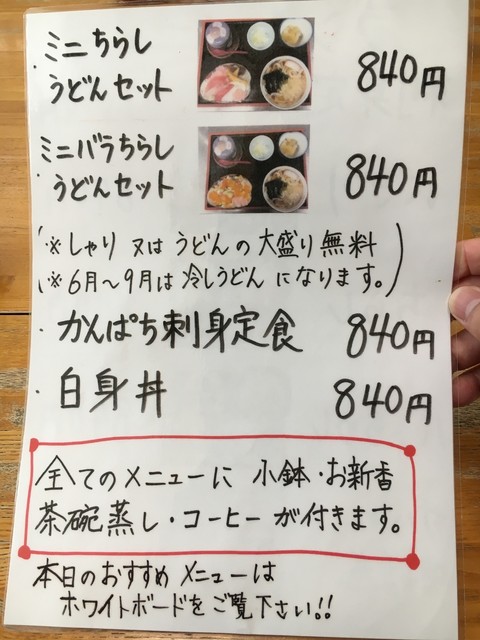 ・ミニちらし
うどんセット 840円
・ミニバラちらし
うどんセット 840円
(※しゃり 又は うどんの大盛り無料)
(※6月~9月は冷しうどん になります。)
・かんぱち刺身定食 840円
・白身丼 840円
全てのメニューに 小鉢・お新香
茶碗蒸し・コーヒー が付きます。
本日のおすすめ メニューは
ホワイトボードをご覧下さい!!